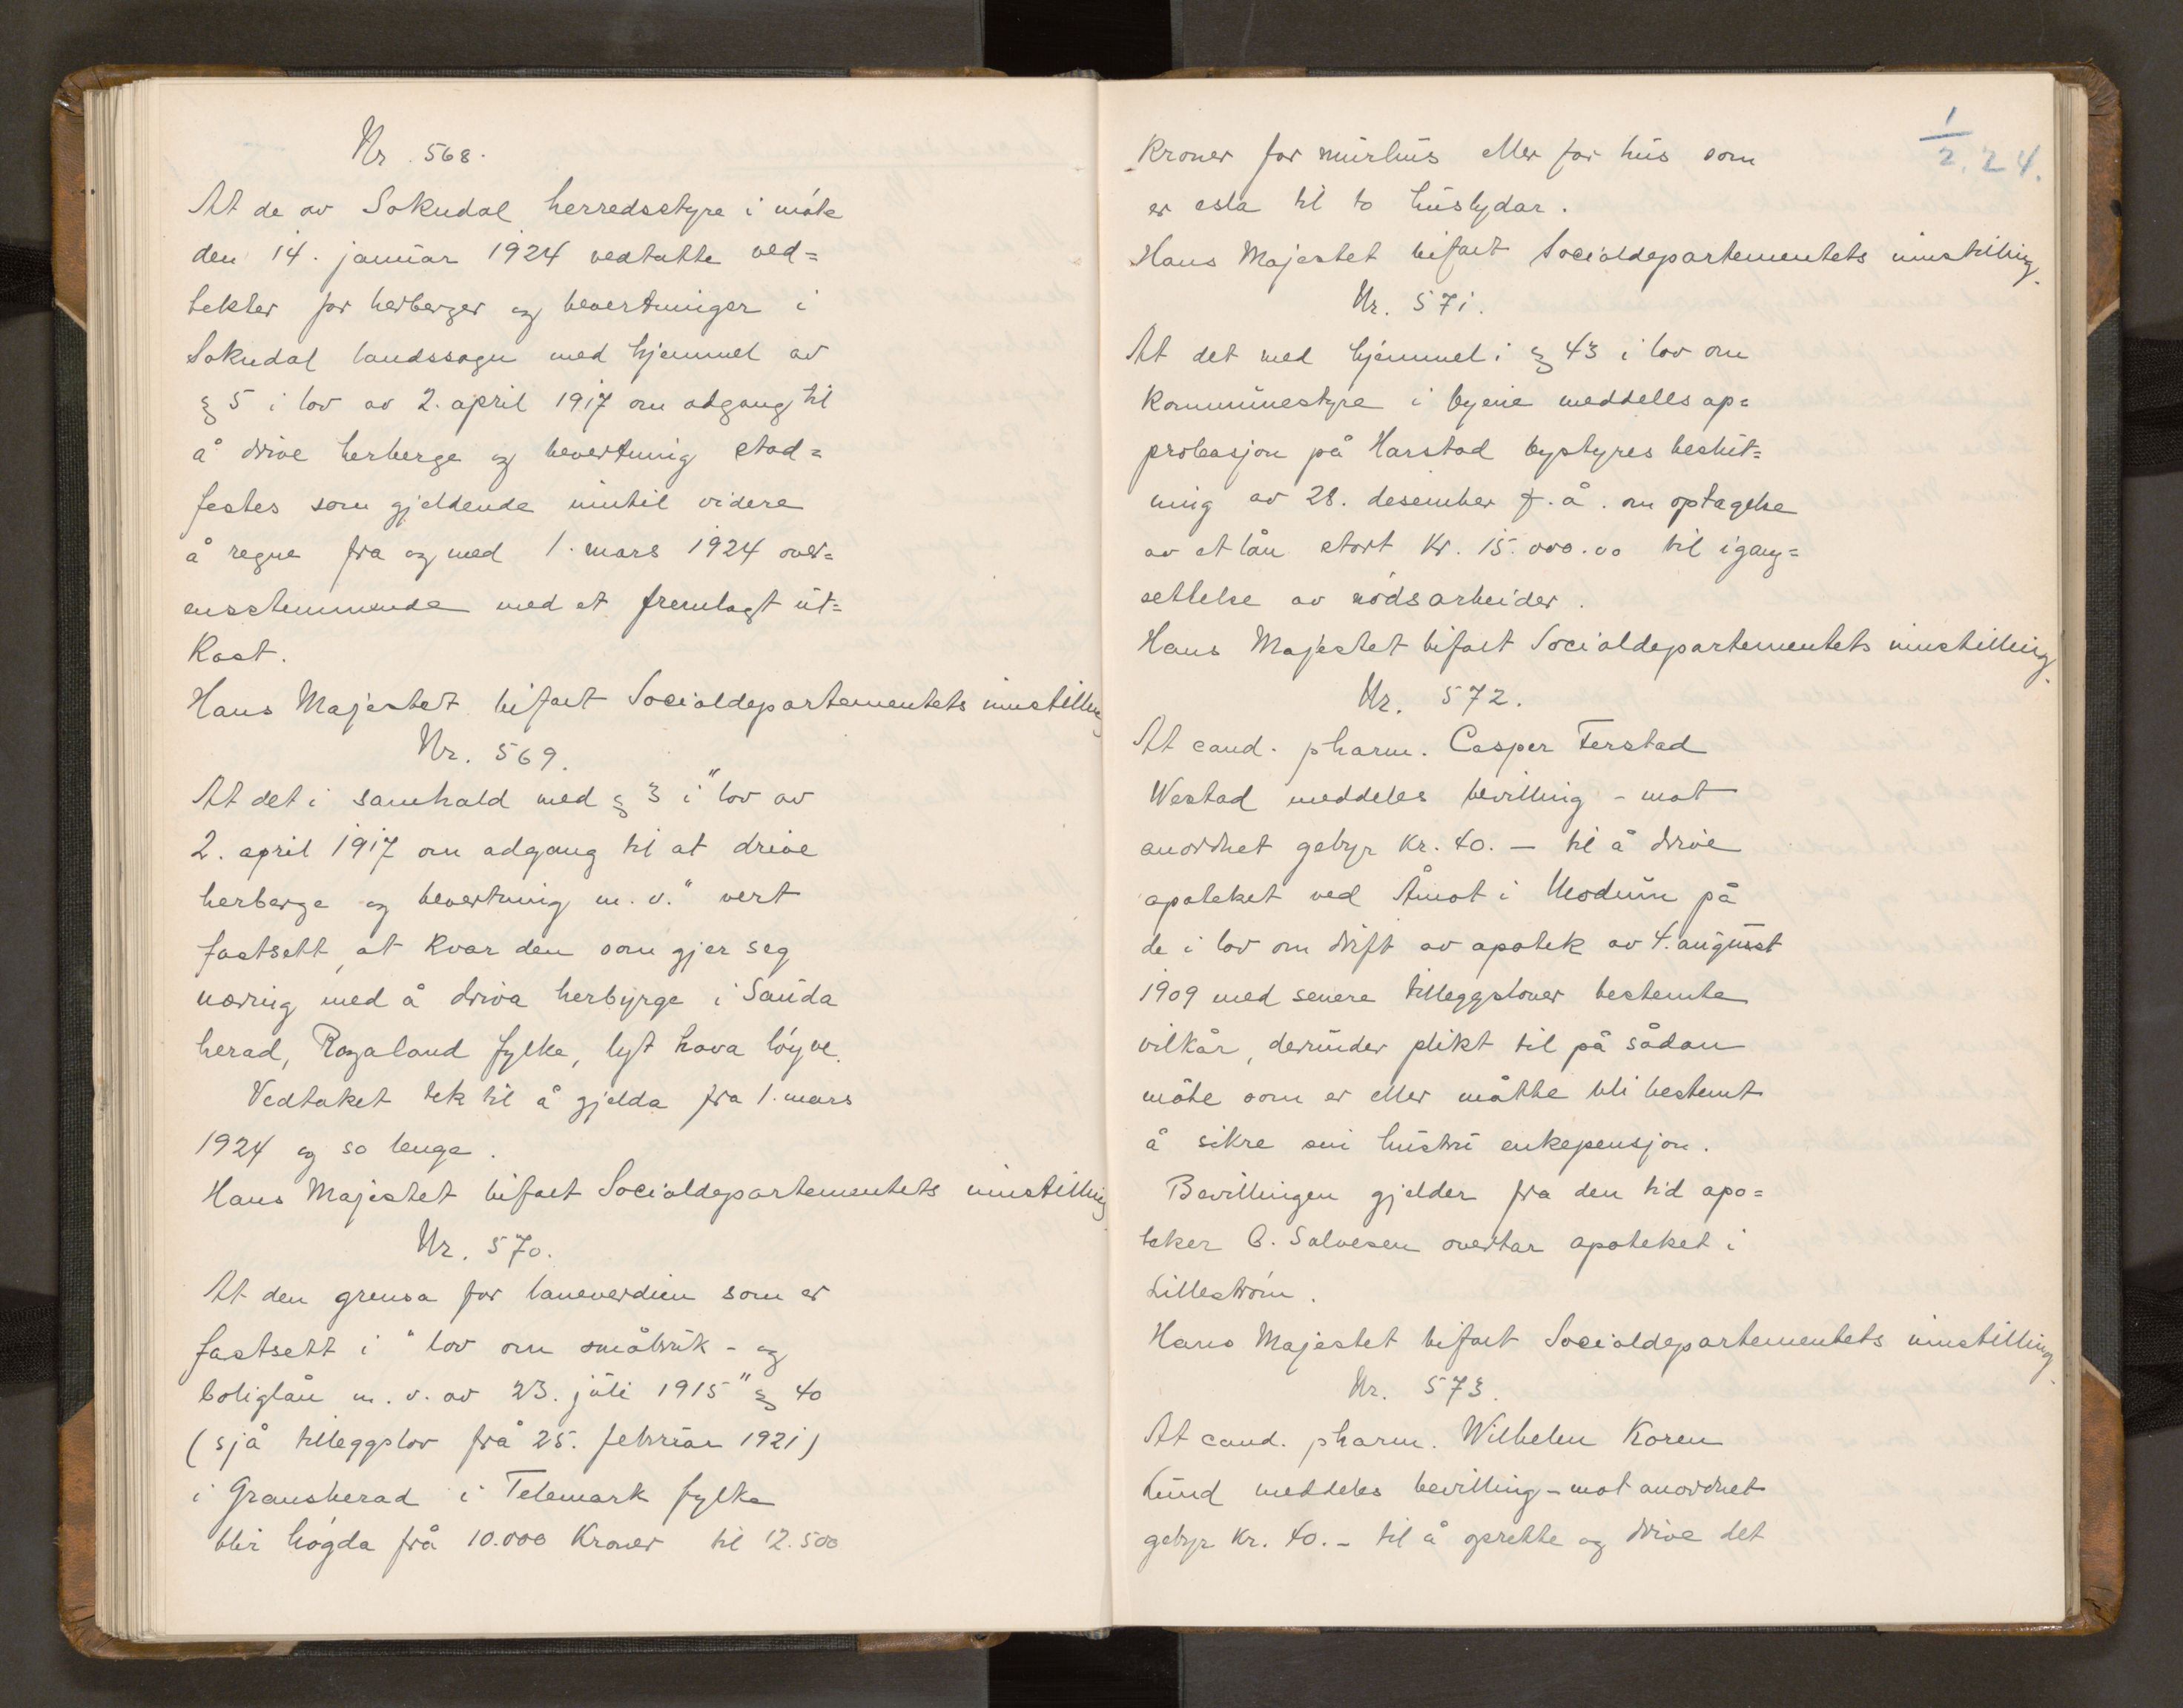 Nr. 568.
At de av Sokndal herredsstyre i møte
den 14. januar 1924 vedtatte ved=
tekter for herberger og bevertninger i
Sokndal landssogn med hjemmel av
§ 5 i lov av 2. april 1917 om adgang til
å drive herberge og bevertning stad=
festes som gjeldende inntil videre
å regne fra og med 1. mars 1924 over=
ensstemmende med et fremlagt ut=
kast.
Hans Majestet bifalt Socialdepartementets innstilling
Nr. 569.
At det i samhald med § 3 i "lov av
2. april 1917 om adgang til at drive
herberge og bevertning m. v." vert
fastsett, at kvar den som gjer seg
næring med å driva herbyrge i Sauda
herad, Rogaland fylke, lyt hava løyve.
Vedtaket tek til å gjelda fra 1. mars
1924 og so lenge.
Hans Majestet bifalt Socialdepartementets innstilling
Nr. 570.
At den grensa for låneverdien som er
fastsett i "lov om småbruk- og
boliglån m. v. av 23. juli 1915" § 40
(sjå tilleggslov frå 25. februar 1921)
i Gransherad i Telemark fylke
blir høgda frå 10.000 Kroner til 12.500
1/2. 24.
Kroner for murhus eller for hus som
er esla til to huslydar.
Hans Majestet bifalt Socialdepartementets innstilling.
Nr. 571.
At det med hjemmel i § 43 i lov om
kommunestyre i byene meddeles ap=
probasjon på Harstad bystyres beslut=
ning av 28. desember f. å. om optagelse
av et lån stort kr. 15.000.00 til igang=
settelse av nødsarbeider.
Hans Majestet bifalt Socialdepartementets innstilling.
Nr. 572.
At cand. pharm. Casper Ferstad
Westad meddeles bevilling - mot
anordnet gebyr kr. 40. — til å drive
apoteket ved Åmot i Modum på
de i lov om drift av apotek av 4. august
1909 med senere tilleggslover bestemte
vilkår, derunder plikt til på sådan
måte som er eller måtte bli bestemt
å sikre sin hustru enkepensjon.
Bevillingen gjelder fra den tid apo=
teker C. Salvesen overtar apoteket i
Lillestrøm.
Hans Majestet bifalt Socialdepartementets innstilling.
Nr. 573.
At cand. pharm. Wilhelm Koren
Lund meddeles bevilling - mot anordnet
gebyr kr. 40. - til å oprette og drive det